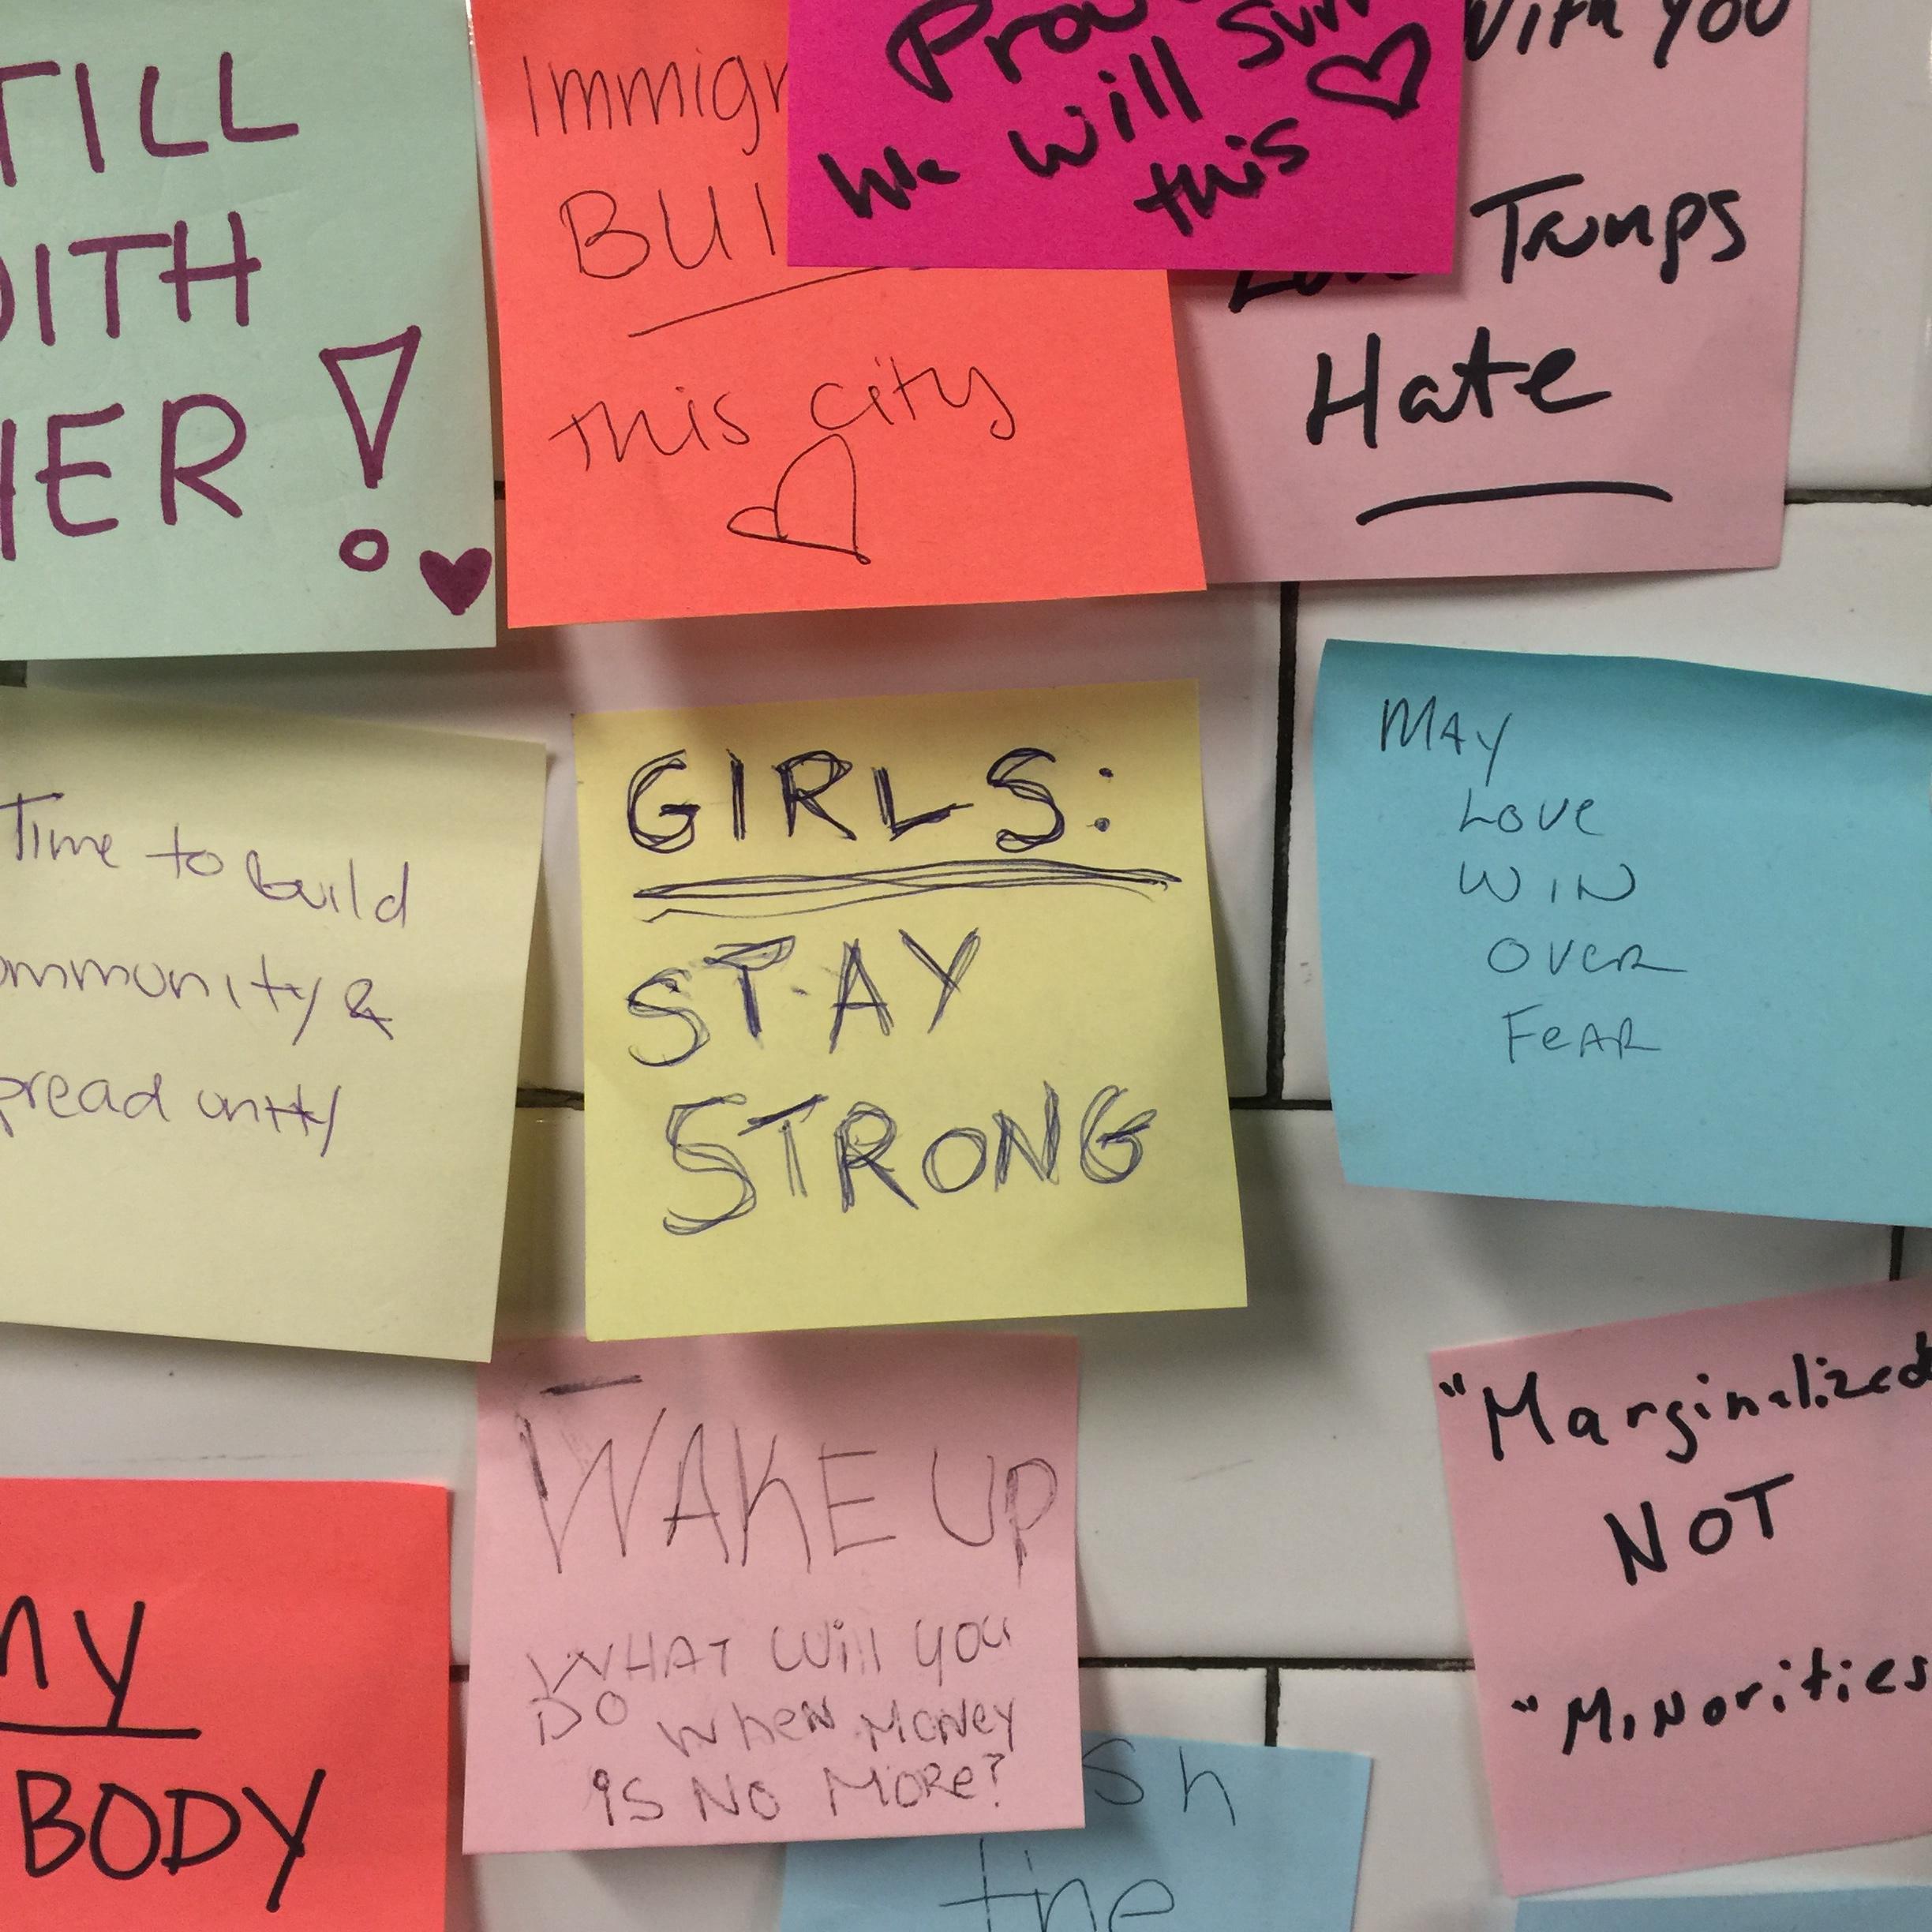 TILL
WITH
HER!
Immigr
BUI
this city
We will
this
With you
Trumps
Hate
Time to build
ommunity &
pread unity
GIRLS:
STAY
STRONG
MAY
LOVE
WIN
OVER
FEAR
WAKE UP
WHAT Will you
DO WheN MONey
iS NO MORe?
"Marginalized
NOT
"Minorities
my
BODY
sh
the